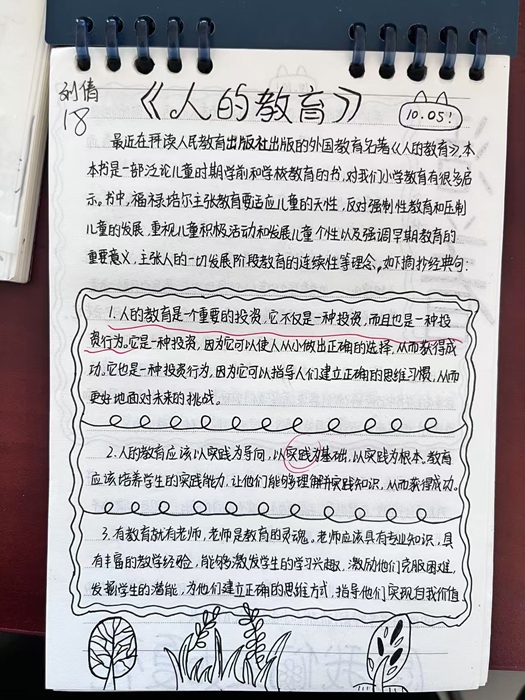 刘倩
18
《人的教育》
10.05!
最近在拜读人民教育出版社出版的外国教育名著《人的教育》,本
本书是一部泛论儿童时期学前和学校教育的书,对我们小学教育有很多启
示。书中,福禄培尔主张教育要适应儿童的天性,反对强制性教育和压制
儿童的发展,重视儿童积极活动和发展儿童个性以及强调早期教育的
重要意义,主张人的一切发展阶段教育的连续性等理念。如下摘抄经典句:
1.人的教育是一个重要的投资,它不仅是一种投资,而且也是一种投
资行为。它是一种投资,因为它可以使人从小做出正确的选择,从而获得成
功。它也是一种投资行为,因为它可以指导人们建立正确的思维习惯,从而
更好地面对未来的挑战。
2.人的教育应该以实践为导向,以实践为基础,以实践为根本,教育
应该培养学生的实践能力,让他们能够理解实践知识,从而获得成功。
3.有教育就有老师,老师是教育的灵魂。老师应该具有专业知识,具
有丰富的教学经验,能够激发学生的学习兴趣,激励他们克服困难,
发掘学生的潜能,为他们建立正确的思维方式,指导他们实现自我价值